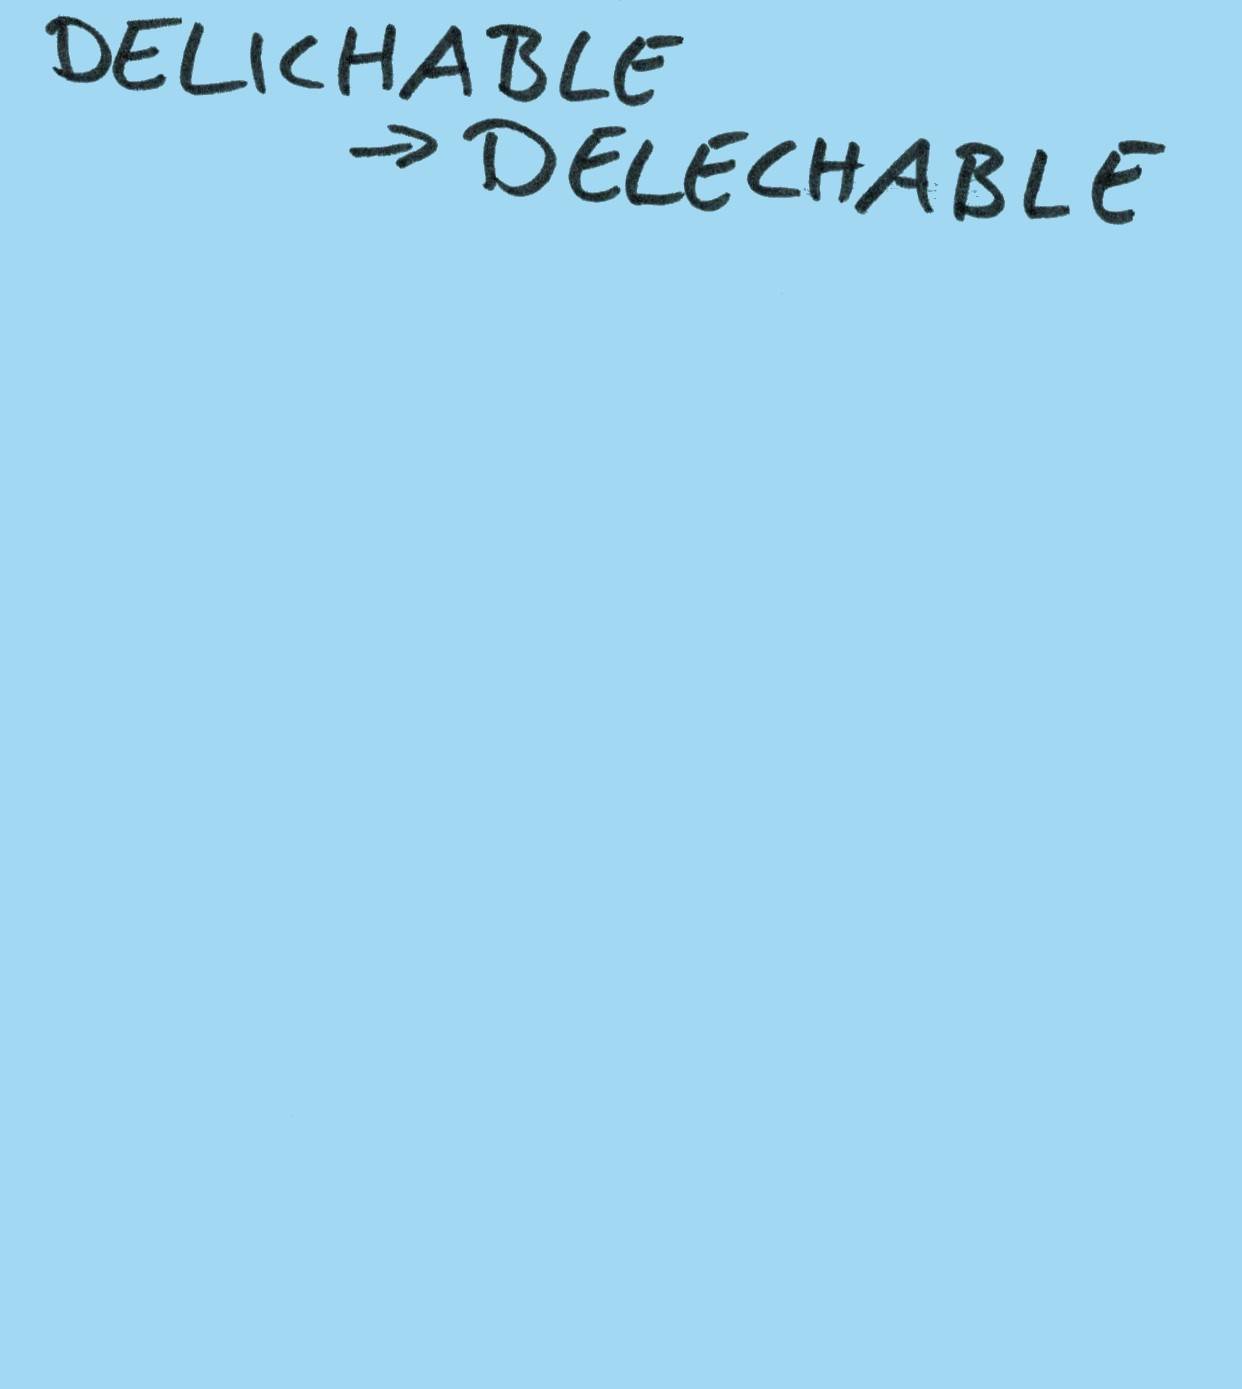 DELICHABLE
→ DELECHABLE